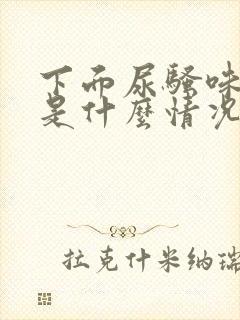 下而尿骚味
是什麼情况
拉克什米纳瑞